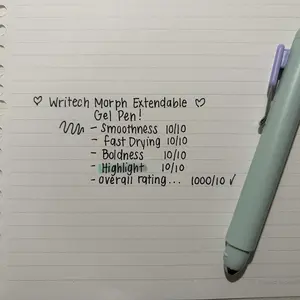 ♡ Writech Morph Extendable ♡
Gel Pen!
- Smoothness 10/10
- Fast Drying 10/10
- Boldness 10/10
- Highlight 10/10
- overall rating... 1000/10 ✓